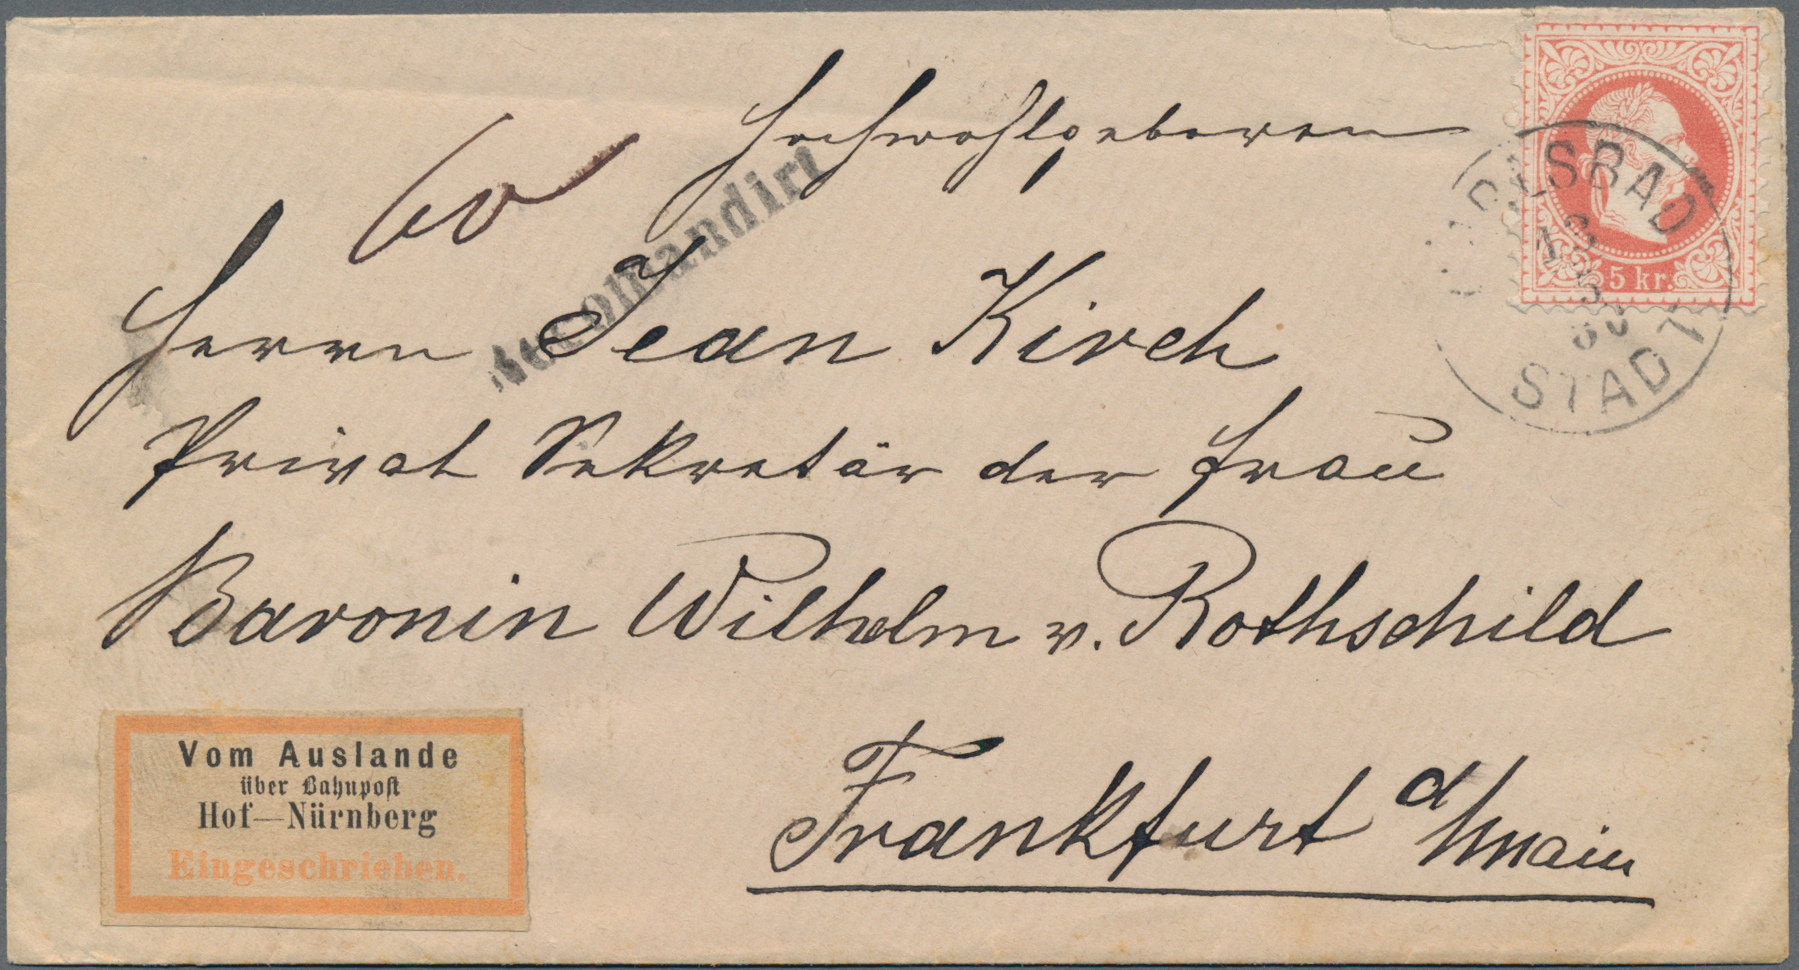 Hochwohlgeboren
60
Recomandirt
Herrn Jean Kirch
Privat Sekretär der Frau
Baronin Wilhelm v. Rothschild
Frankfurt a/Main
5 kr.
KARLSBAD
STADT
Vom Auslande
über Bahnpost
Hof—Nürnberg
Eingeschrieben.